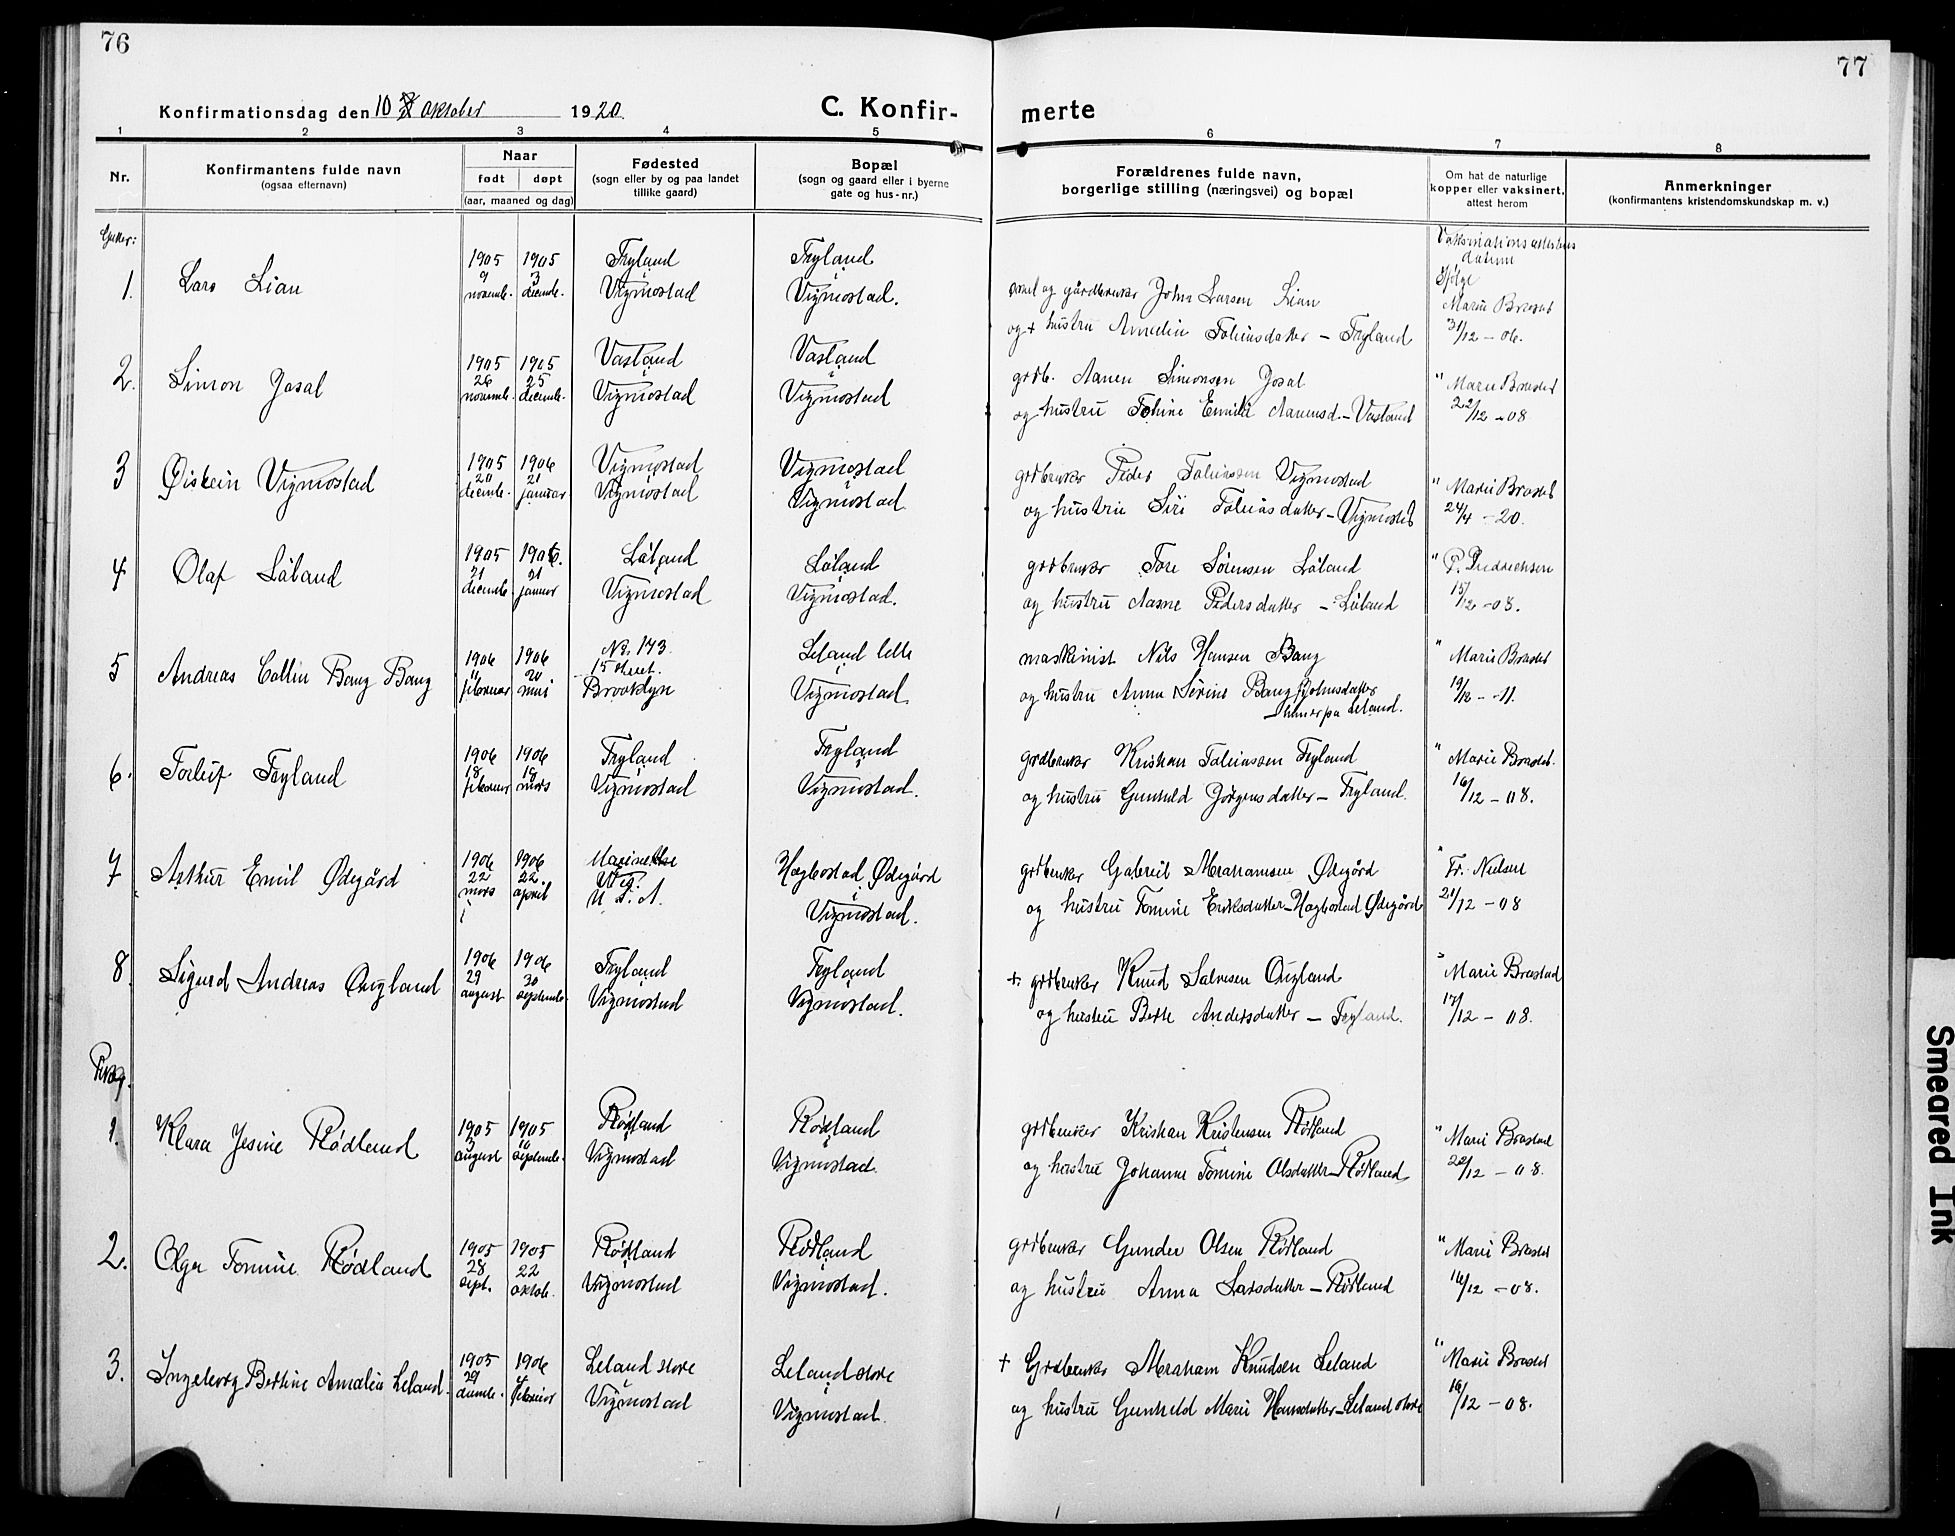 76
77
Konfirmationsdag den 10 oktober 1920.
C. Konfir-
merte
1 2 3 4 5 6 7 8
Nr.
Konfirmantens fulde navn
(ogsaa efternavn)
Naar
født døpt
(aar, maaned og dag)
Fødested
(sogn eller by og paa landet
tillike gaard)
Bopæl
(sogn og gaard eller i byerne
gate og hus-nr.)
Forældrenes fulde navn,
borgerlige stilling (næringsvei) og bopæl
Om hat de naturlige
kopper eller vaksinert,
attest herom
Anmerkninger
(konfirmantens kristendomskundskap m. v.)
Gutter:
Vaksinationsattestens
datum
1. Lars Lian
1905 9 novemb.
1905 3 decemb.
Fryland i Vigmostad
Fryland i Vigmostad.
og gårdbruker John Larsen Lian
og + hustru Amelia Tobiasdatter – Fryland
Ifølge Marie Brastad
31/12 – 06.
2. Simon Josal
1905 26 novemb.
1905 25 decemb.
Vastand i Vigmostad
Vastand i Vigmostad
grdb. Aanen Simonsen Josal
og hustru Emilie Aanensd. – Vastand
" Marie Brastad
22/12 – 08
3 Øistein Vigmostad
1905 20 decemb.
1906 21 januar
Vigmostad i Vigmostad
Vigmostad i Vigmostad
grdbruker Peder Tobiassen Vigmostad
og hustru Siri Tobiasdatter – Vigmostad
" Marie Brastad
24/4 – 20.
4 Olaf Låland
1905 21 decemb.
1906. 21 januar
Låland i Vigmostad
Låland i Vigmostad.
grdbruker Tore Sørensen Låland
og hustru Aasne Pedersdatter – Låland
" P. Fredrechsen
15/12 – 08.
5 Andreas Collin Bang Bang
1906 11 februar
1906 20 mai
No. 173
15 street.
Brooklyn
Leland lille i Vigmostad
maskinist Nils Hansen Bang
og hustru Anna Serine Bang Johnsdatter
– hun er på Leland.
" Marie Brastad
19/12 – 11.
6. Torleif Fryland
1906 18 februar
1906 18 mars
Fryland i Vigmostad
Fryland i Vigmostad.
grdbruker Kristian Tobiassen Fryland
og hustru Gunhild Jørgensdatter – Fryland.
" Marie Brastad.
16/12 – 08.
7 Arthur Emil Ødegård
1906 22 mars
1906 22 april
U. S. A.
Hægbostad Ødegård
i Vigmostad.
grdbruker Gabriel Abrahamsen Ødegård
og hustru Tomine Eriksdatter – Hægbostad Ødegård
" Fr. Nielsen
21/12 – 08
8. Sigurd Andreas Øugland
1906 29 august
1906 30 septemb.
Fryland i Vigmostad
Fryland i Vigmostad.
+ grdbruker Knud Salvesen Øugland
og hustru Berte Andersdatter – Fryland.
" Marie Brastad
17/12 – 08.
1. Klara Jesine Rødland
1905 3 august
1905 10 septemb.
Rødland i Vigmostad
Rødland i Vigmostad.
grdbruker Kristian Kristensen Rødland
og hustru Johanne Tomine Olsdatter – Rødland
" Marie Brastad
22/12 – 08.
2. Olga Tomine Rødland
1905 28 sept.
1905 22 oktob.
Rødland i Vigmostad
Rødland i Vigmostad.
grdbruker Gunder Olsen Rødland
og hustru Anna Larsdatter – Rødland
" Marie Brastad
16/12 – 08.
3. Ingeborg Bertine Amalia Leland.
1905 29 decemb.
1906 4 februar
Leland store i Vigmostad
Leland store i Vigmostad.
+ Grdbruker Abraham Knudsen Leland
og hustru Gunhild Marie Hansdatter – Leland store
" Marie Brastad
16/12 – 08.
Smeared Ink